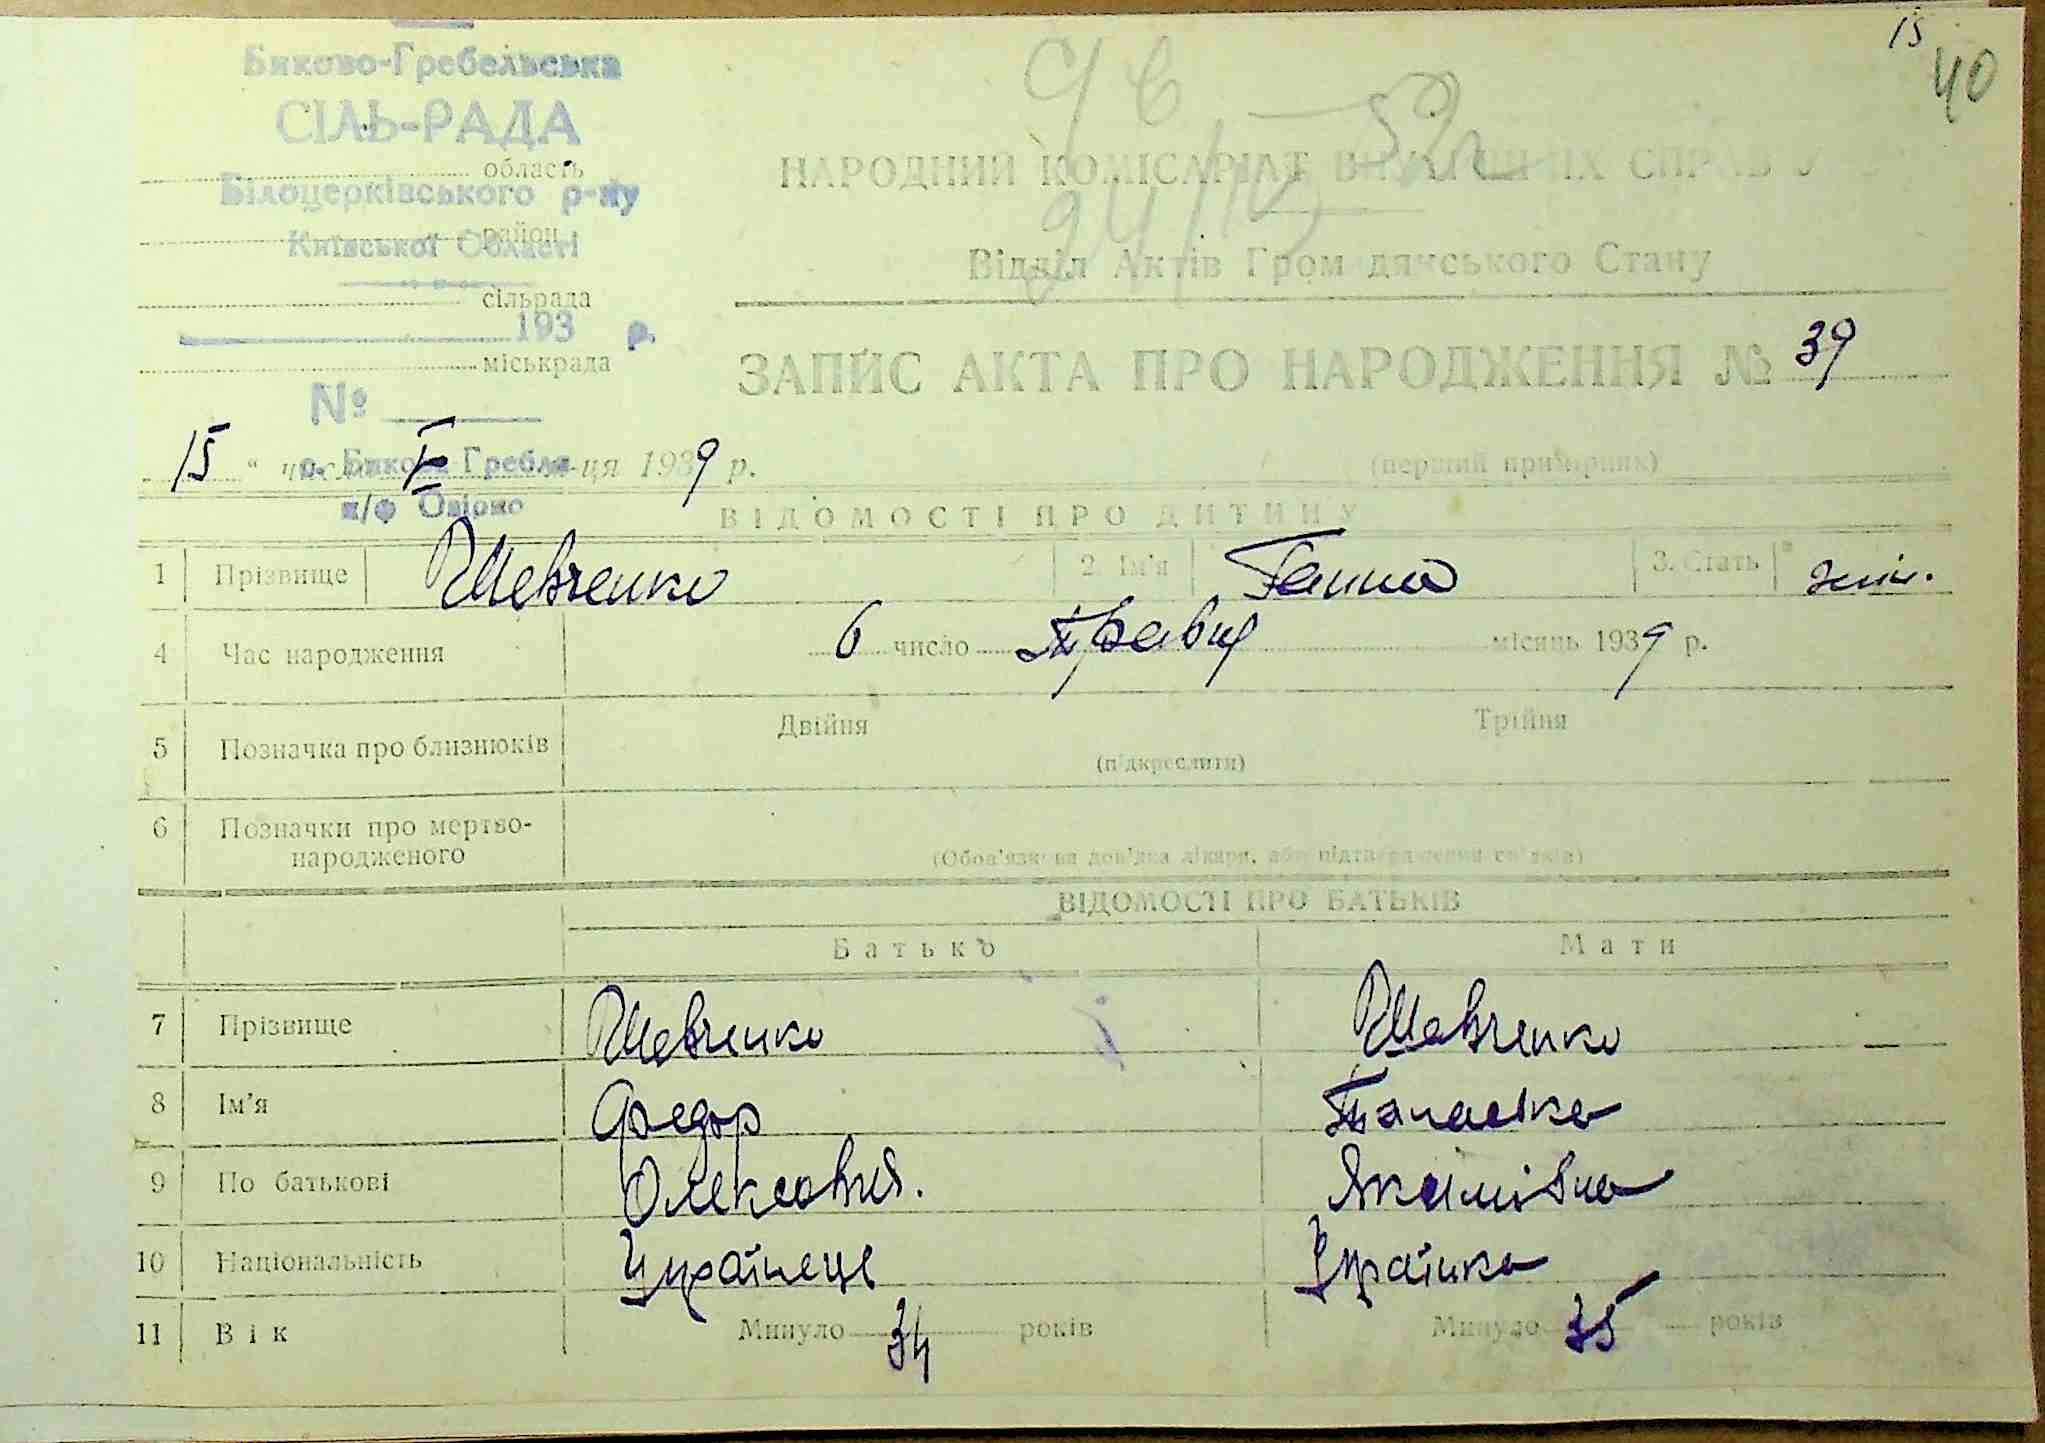 15
40
Биково-Гребельська
СІЛЬ-РАДА
область
Білоцерківського р-ну
район
Київської Області
сільрада
193 р.
міськрада
№
НАРОДНИЙ КОМІСАРІАТ ВНУТРІШНІХ СПРАВ У
Відділ Актів Громадянського Стану
ЗАПИС АКТА ПРО НАРОДЖЕННЯ № 39
15 " числа V м-ця 1939 р.
с. Бикова-Гребля
(перший примірник)
ВІДОМОСТІ ПРО ДИТИНУ
1 Прізвище Шевченко 2. Ім'я Ганна 3. Стать жін.
4 Час народження 6 число Травня місяць 1939 р.
5 Позначка про близнюків Двійня Трійня
(підкреслити)
6 Позначки про мертво-
народженого
(Обов'язкова довідка лікаря, або підтвердження свідків)
ВІДОМОСТІ ПРО БАТЬКІВ
Батько Мати
7 Прізвище Шевченко Шевченко
8 Ім'я Федор
9 По батькові Олексович. Якимівна
10 Національність Українець Українка
11 Вік Минуло 34 років Минуло 35 років